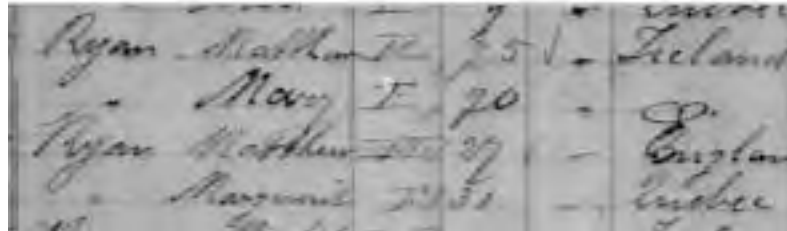 Quebec
Ryan Matthew 75 Ireland
" Mary F 70 "
Ryan Matthew 37 Englan
" Marguerit F 30 Quebec